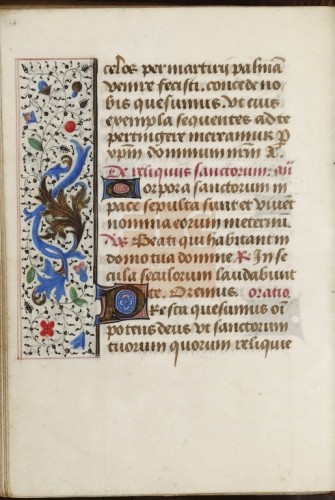 celos per martirii palmā
venire fecisti. concede no
bis quesumus. ut eius
exempla sequentes ad te
pertingere mereamur p
xpm dominum nrm A.
De reliquiis sanctorum. añ
Corpora sanctorum in
pace sepulta sunt et vivēt
nomina eorum ineternū
Vs Beati qui habitant in
domo tua domine. R In se
cula seculorum laudabunt
te. Oremus. oratio.
Presta quesumus oī
potens deus ut sanctorum
tuorum quorum reliquie